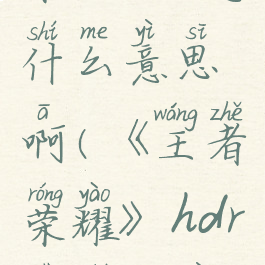 shí me yì sī
什么意思
ā wáng zhě
啊(《王者
róng yào
荣耀》hdr